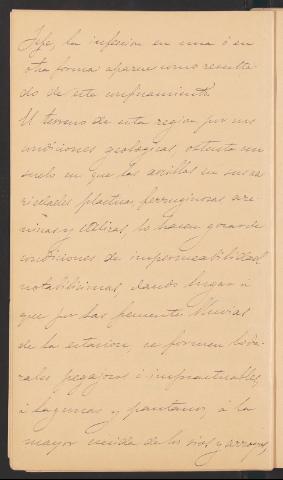 Jefe, la infeccion en una ó en
otra forma aparece como resulta
do de este confinamiento.
El terreno de esta region por sus
condiciones geologicas, ostenta un
suelo en que las arcillas en sus va
riedades plastica, ferruginosas are-
niscas y, lo hacen gozar de
condiciones de impermeabilidad
notabilisimas, dando lugar á
que por las frecuentes lluvias
de la estacion, se formen loda-
zales pegajosos é impracticables,
ó lagunas y pantanos, á la
mayor crecida de los rios y arroyos,